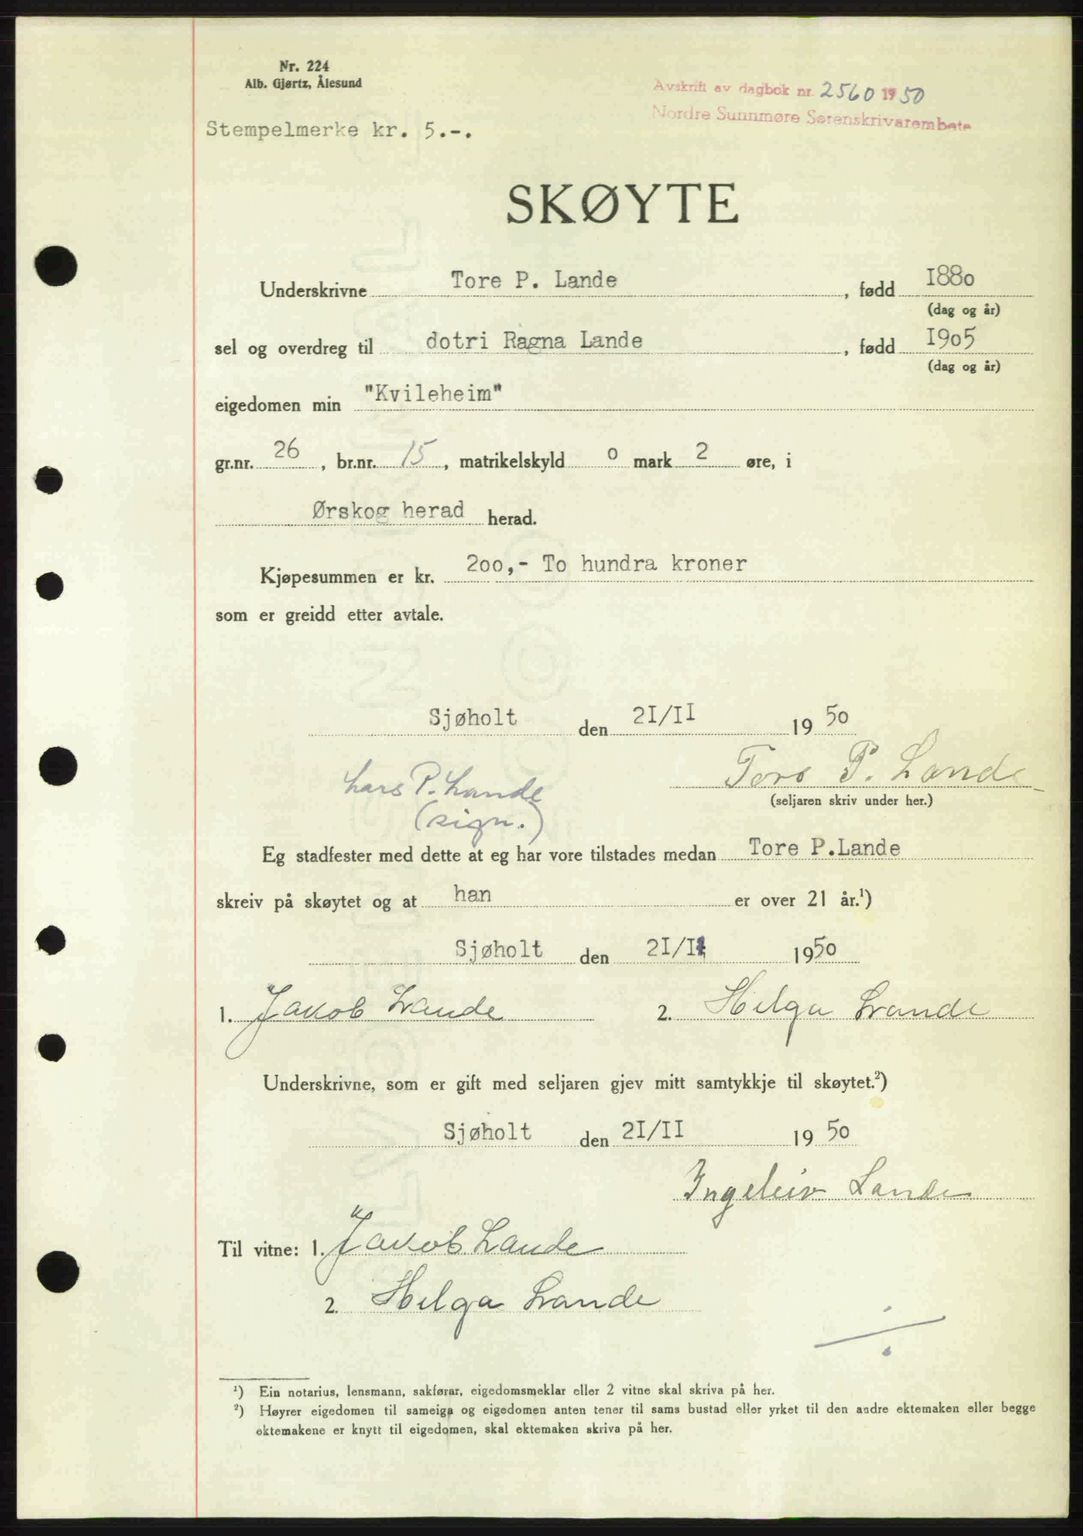 Nr. 224
Alb. Gjørtz, Ålesund
Avskrift av dagbok nr. 2560 1950
Nordre Sunnmøre Sorenskrivarembete
Stempelmerke kr. 5.-.
SKØYTE
Underskrivne Tore P. Lande, fødd I88o
(dag og år)
sel og overdreg til dotri Ragna Lande, fødd I9o5
(dag og år)
eigedomen min "Kvileheim"
gr.nr. 26, br.nr. 15, matrikelskyld o mark 2 øre, i
Ørskog herad herad.
Kjøpesummen er kr. 2oo,- To hundra kroner
som er greidd etter avtale.
Sjøholt den 2I/II 19 50
Tore P. Lande
(seljaren skriv under her.)
Lars P. Lande
(sign.)
Eg stadfester med dette at eg har vore tilstades medan Tore P.Lande
skreiv på skøytet og at han er over 21 år.¹)
Sjøholt den 2I/II 1950
1. Jakob Lande 2. Helga Lande
Underskrivne, som er gift med seljaren gjev mitt samtykkje til skøytet.²)
Sjøholt den 2I/II 19 50
Ingeleiv Lande
Til vitne: 1. Jakob Lande
2. Helga Lande
¹) Ein notarius, lensmann, sakførar, eigedomsmeklar eller 2 vitne skal skriva på her.
²) Høyrer eigedomen til sameiga og eigedomen anten tener til sams bustad eller yrket til den andre ektemaken eller begge
ektemakene er knytt til eigedomen, skal ektemaken skriva på her.